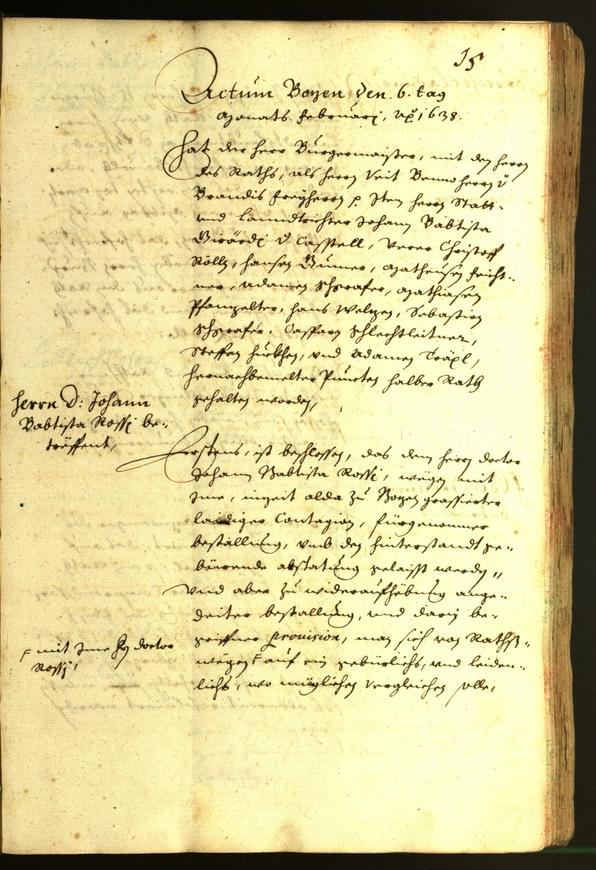 15
Actum Bozen den. 6. tag
Monats Februarj, Ao 1638.
Hat der Herr Burgermaister, mit den herrn
des Raths, als herrn Veit Benno herrn v
Brandis Freyherrn p Item herrn Statt-
und Lanndtrichter Johann Babtista
Girardj v Casstell, Christoff
Rölln, Hansen Gumer, Matheusen Feicht-
ner, Adamen Schgrafer, Mathiasen
Pfanzelter, Hans Welzen, Sebastian
Schgrafer, Casparn Schlechtleitner,
Steffen Huebhen, und Adamen Träxl,
hernachbemelter Puncten halber Rath
gehalten worden,
Herrn D: Johann
Babtista Rossj be-
treffent,
Erstens, ist beschlossen, das dem herrn doctor
Johann Babtista Rossj, wegen mit
Ime, ingeit alda zu Bozen grassierter
laidiger Contagion, fürgenomner
bestallung, umb den hinterstandt ge-
bürende abstatung gelaisst werden,
Unnd aber zu wideraufhebung ange-
deiter bestallung, und darin be-
griffner provision, man sich von Raths-
wegen auf ein gebürlichs, und leiden-
lichs, wo müglichen vergleichen solle,
mit Ime Hn doctor
Rossj,